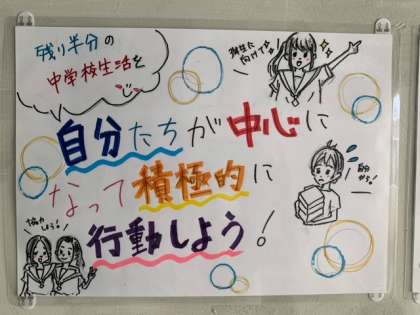 残り半分の
中学校生活を
自分たちが中心に
なって積極的に
行動しよう！
向けて
自分
から！
協力
しよう！